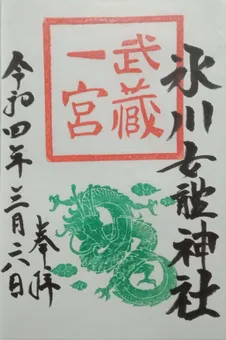 氷川女體神社
武藏
一宮
奉拝
令和四年三月六日